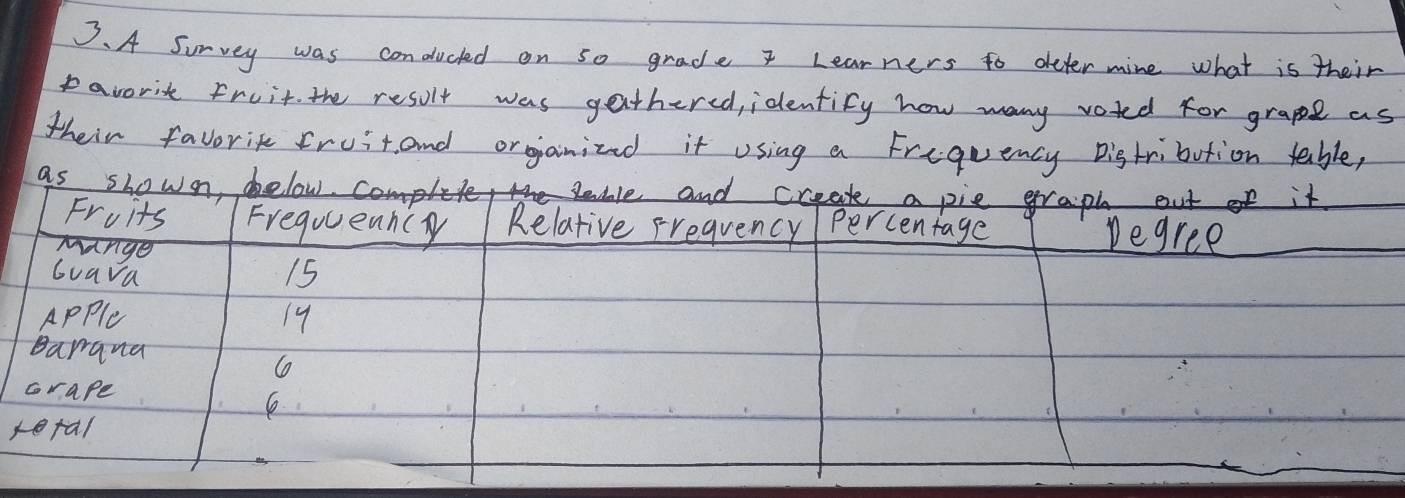 3. A Survey was conducted on 50 grade 7 Learners to determine what is their
favorite fruit. the result was gathered, identify how many voted for grape as
their favorite fruit. and organized it using a Frequency Distribution table,
as shown, below. Complete, the table and create a pie graph out of it.
Fruits Frequency Relative Frequency Percentage Degree
Mango
Guava 15
Apple 14
Banana 6
Grape 6
total